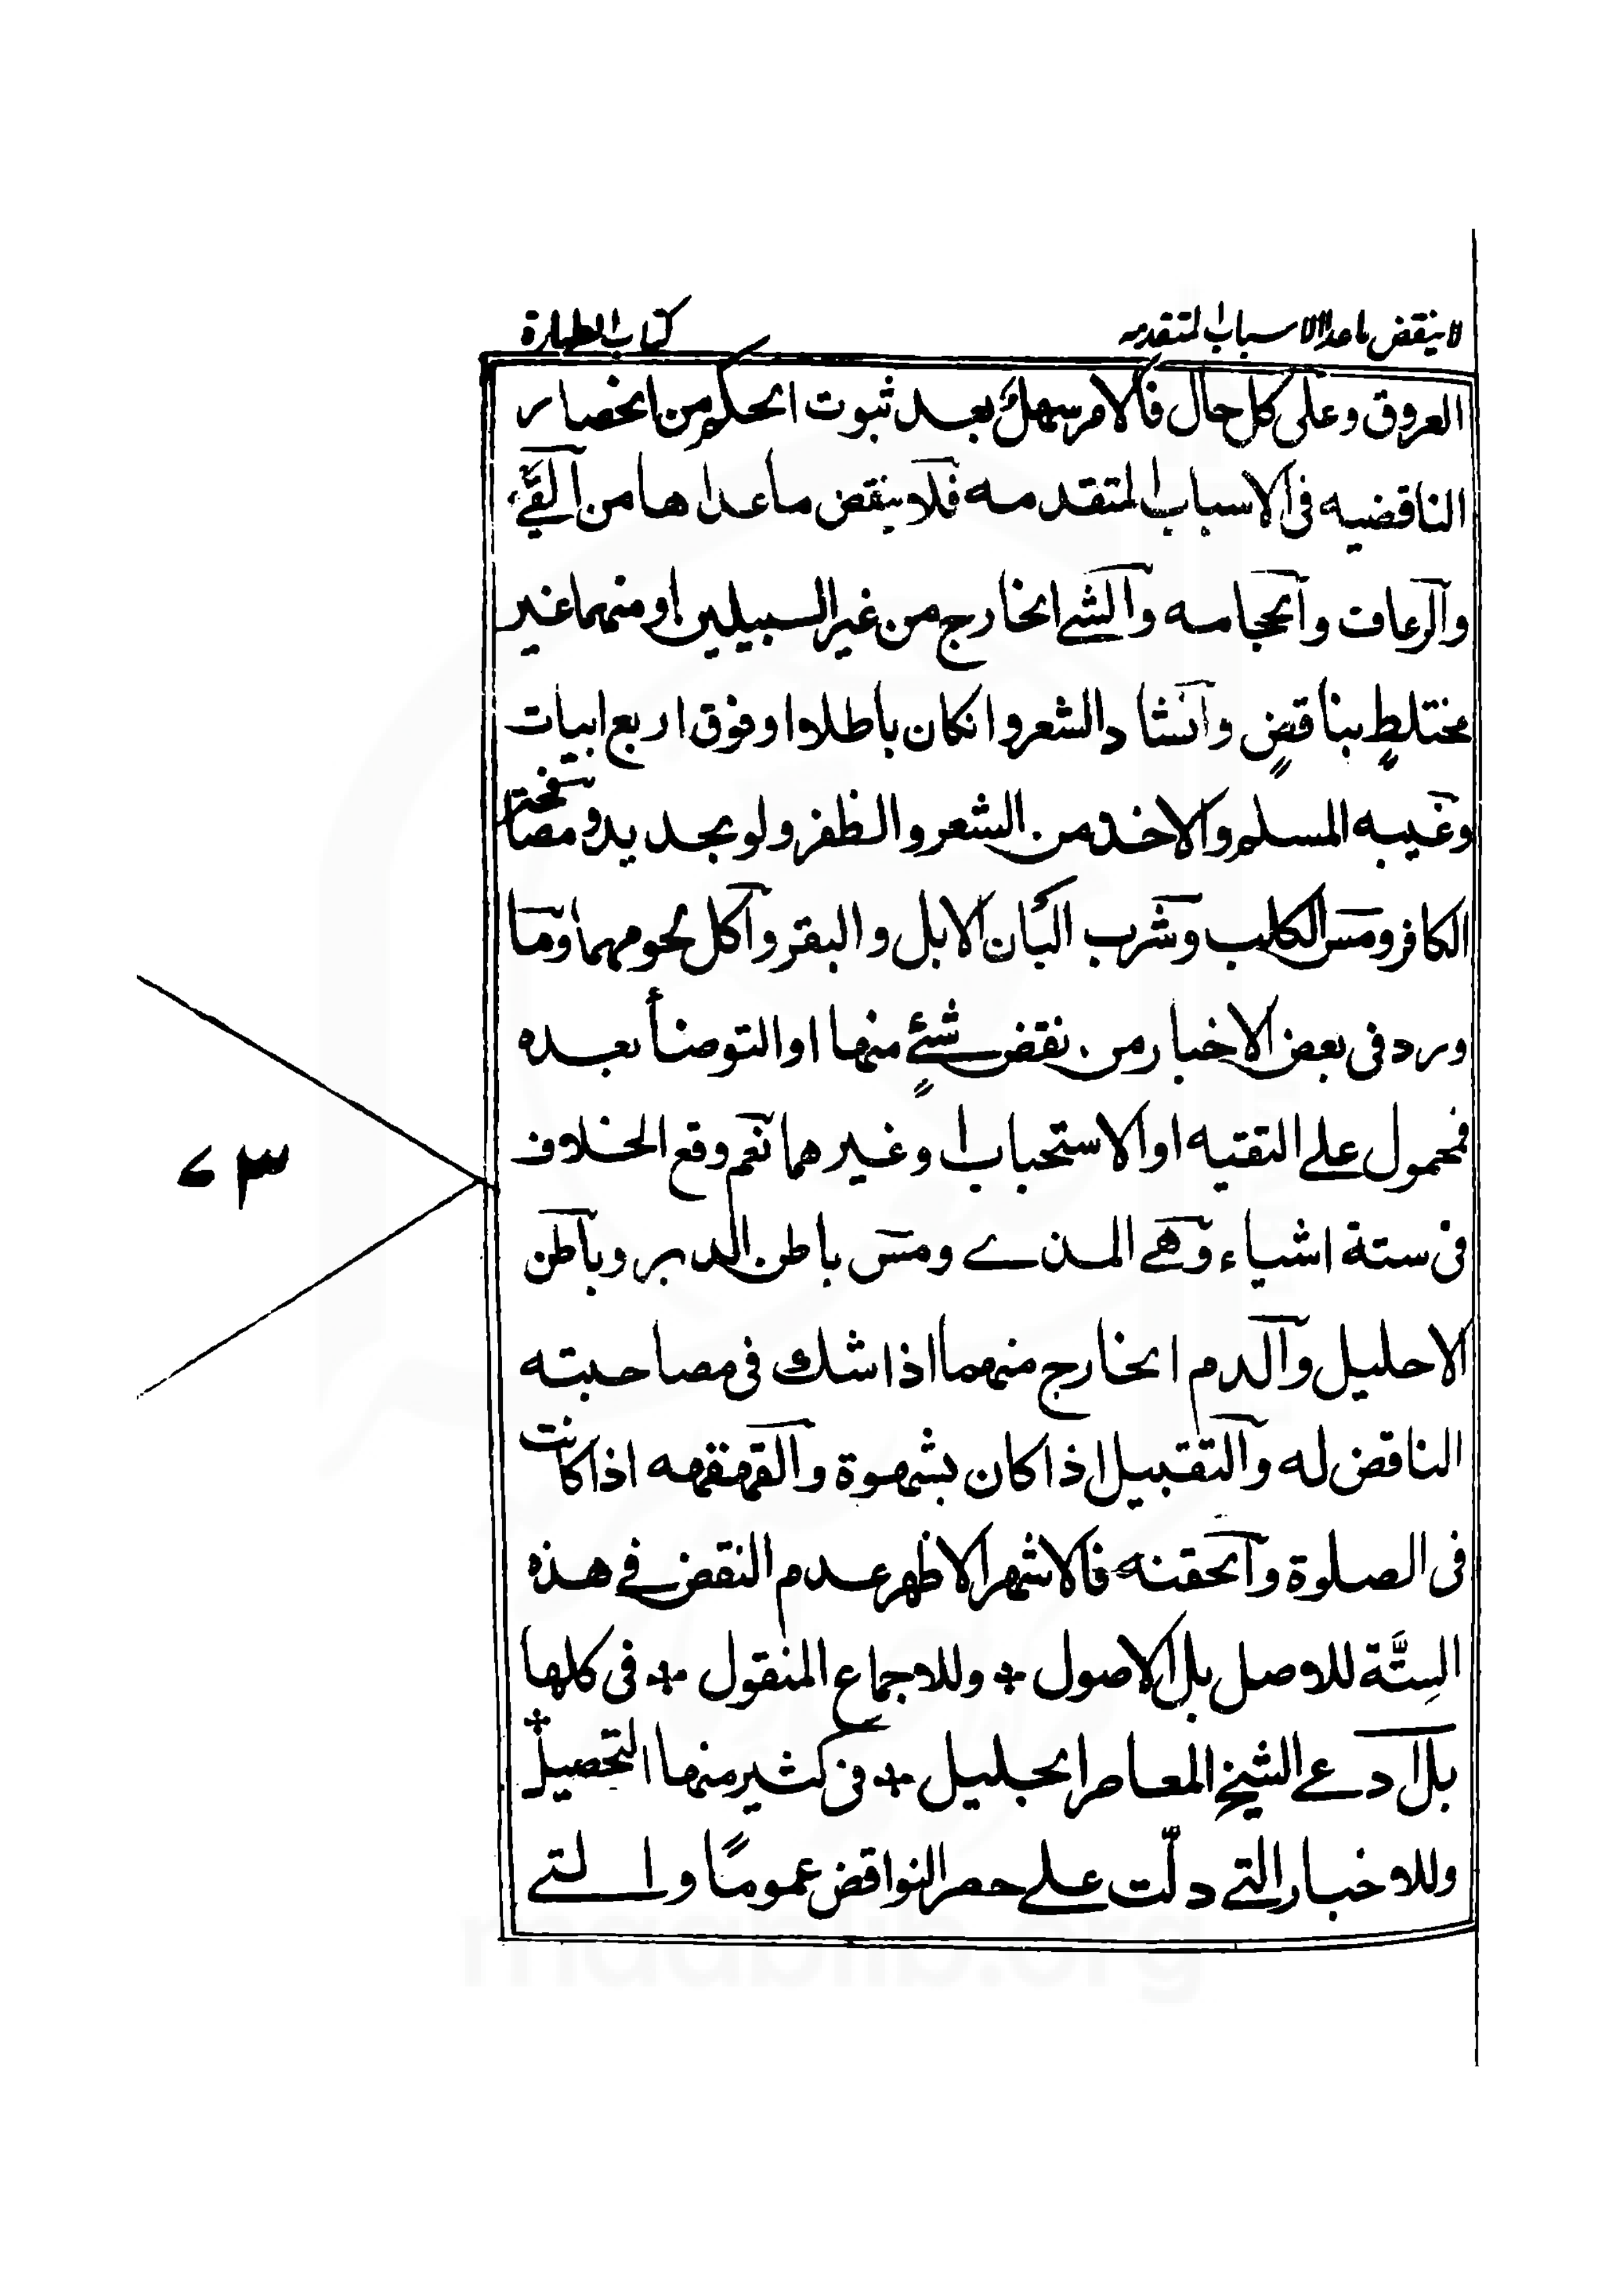 لا ينقض ماعدا الاسباب المتقدمه
كتاب الطهارة
العروق وعلى كل حال فالامر سهل بعد ثبوت الحكم من انحصار
الناقضيه فى الاسباب المتقدمه فلا ينقض ماعداها من القئ
والرعاف والحجامه والشے الخارج من غير السبيلين او منهما غير
مختلطٍ بناقضٍ وانشاد الشعر وانكان باطلا او فوق اربع ابيات
وغيبه المسلم والاخذ من الشعر والظفر ولو بحديد ومصافحة
الكافر ومس الكلب وشرب البان الابل والبقر واكل لحومهما وما
ورد فى بعض الاخبار من نقض شئےٍ منها او التوضأ بعده
فمحمول علے التقيه او الاستحباب او غيرهما نعم وقع الخلاف
فى ستة اشياء وهے المذے ومس باطن الدبر وباطن
الاحليل والدم الخارج منهما اذا شك فى مصاحبته
الناقض له والتقبيل اذا كان بشهوة والقهقهه اذا كانت
فى الصلوة والحقنه فالاشهر الاظهر عدم النقض فے هذه
السِتَّة للاصل بل الاصول + وللاجماع المنقول + فى كلها
بل ادعے الشيخ المعاصر الجليل + فى كثير منها التحصيل +
وللاخبار التے دلّت علے حصر النواقض عمومًا والتے
٧٣
maablib.org